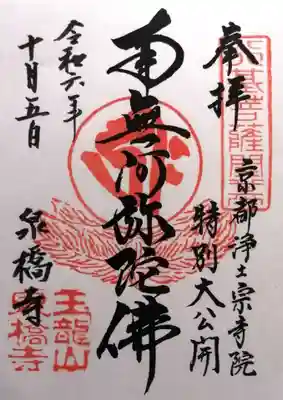 奉拝
京都浄土宗寺院
特別大公開
南無阿弥陀佛
令和六年
十月五日
泉橋寺
行基菩薩開基
玉龍山
泉橋寺